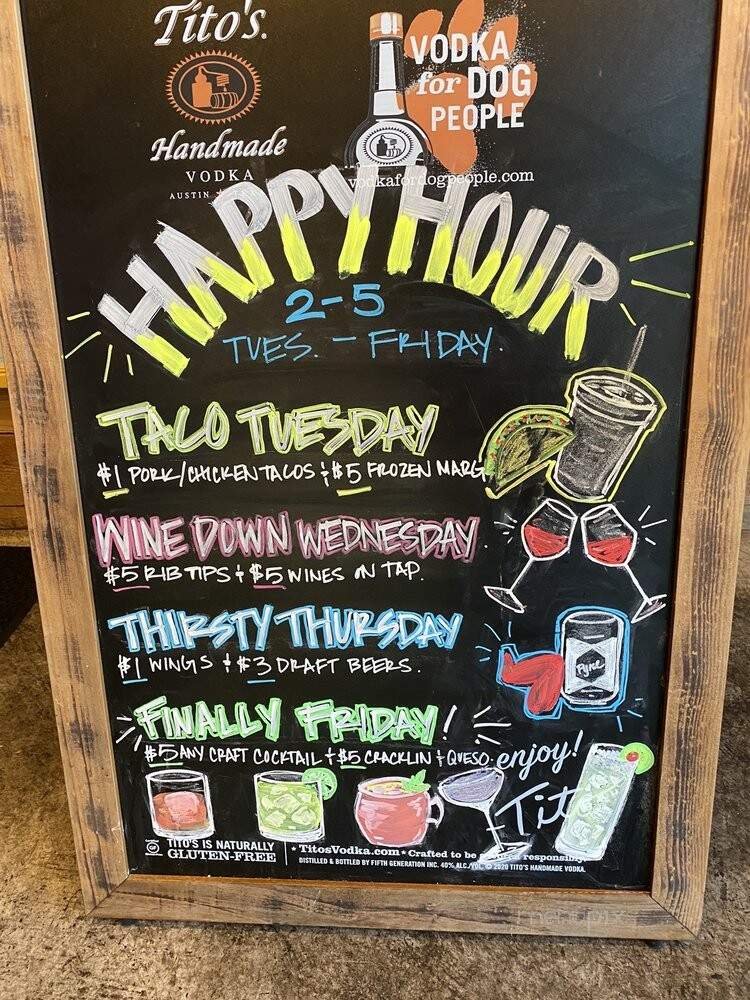 Tito's.
Handmade
VODKA
AUSTIN
VODKA
for DOG
PEOPLE
vodkafordogpeople.com
HAPPY HOUR
2-5
TUES. - FRIDAY.
TACO TUESDAY
$1 PORK/CHICKEN TACOS & $5 FROZEN MARG
WINE DOWN WEDNESDAY.
$5 RIB TIPS + $5 WINES ON TAP.
THIRSTY THURSDAY
$1 WINGS + $3 DRAFT BEERS.
Pyre
FINALLY FRIDAY!
$5 ANY CRAFT COCKTAIL + $5 CRACKLIN + QUESO.
enjoy!
Tit
GF
TITO'S IS NATURALLY
GLUTEN-FREE
* TitosVodka.com * Crafted to be responsibly.
DISTILLED & BOTTLED BY FIFTH GENERATION INC. 40% ALC./VOL. © 2020 TITO'S HANDMADE VODKA.
menupix